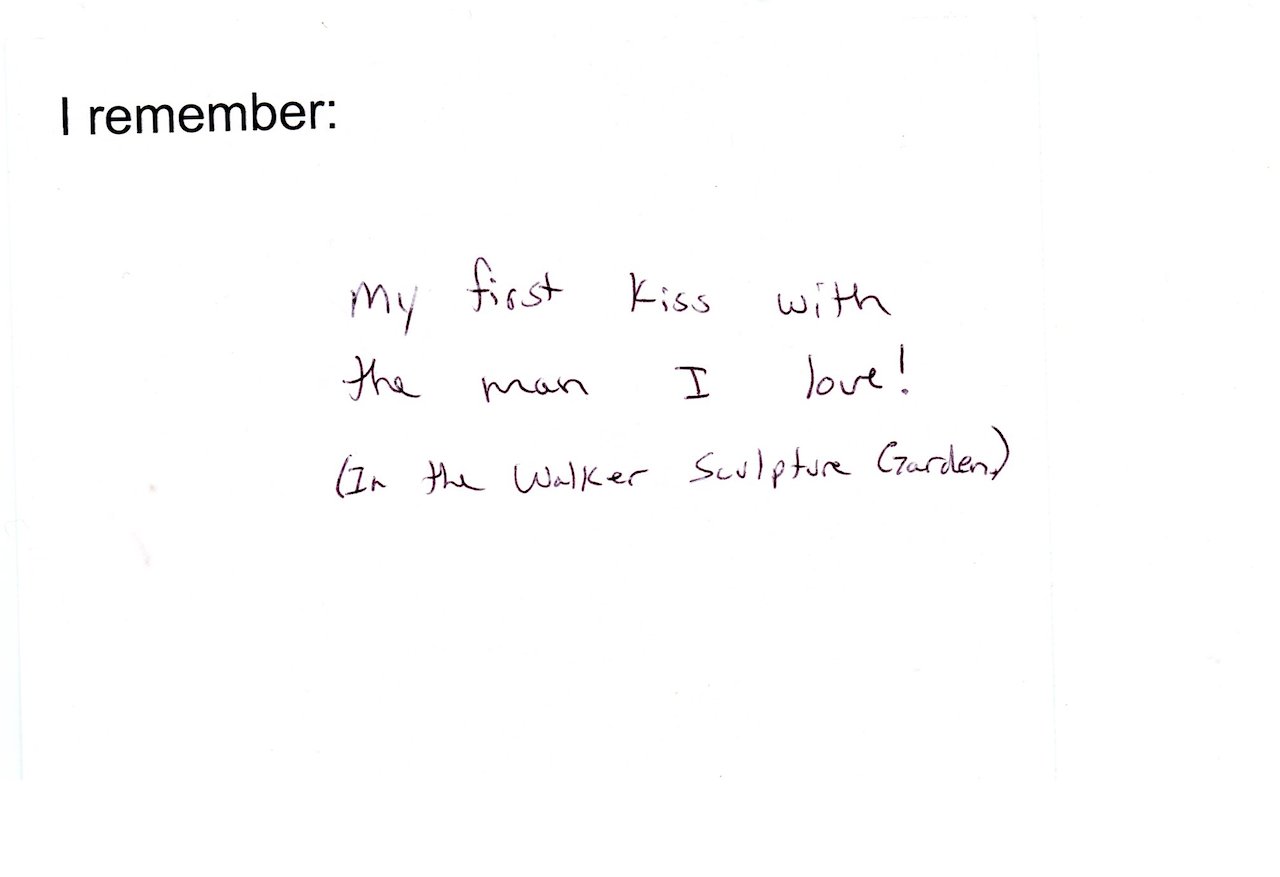 I remember:
My first kiss with
the man I love!
(In the Walker Sculpture Garden)